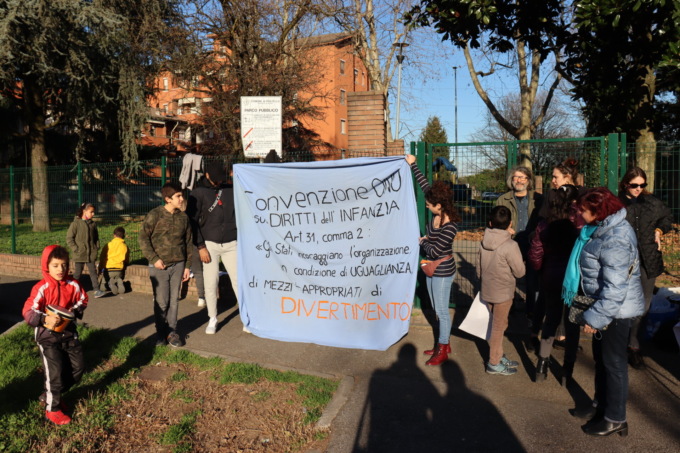 PARCO PUBBLICO
onvenzione ONU
su DIRITTI dell' INFANZIA
Art. 31, comma 2 :
incoraggiano l'organizzazione
in condizione di UGUAGLIANZA
di MEZZI APPROPRIATI di
DIVERTIMENTO